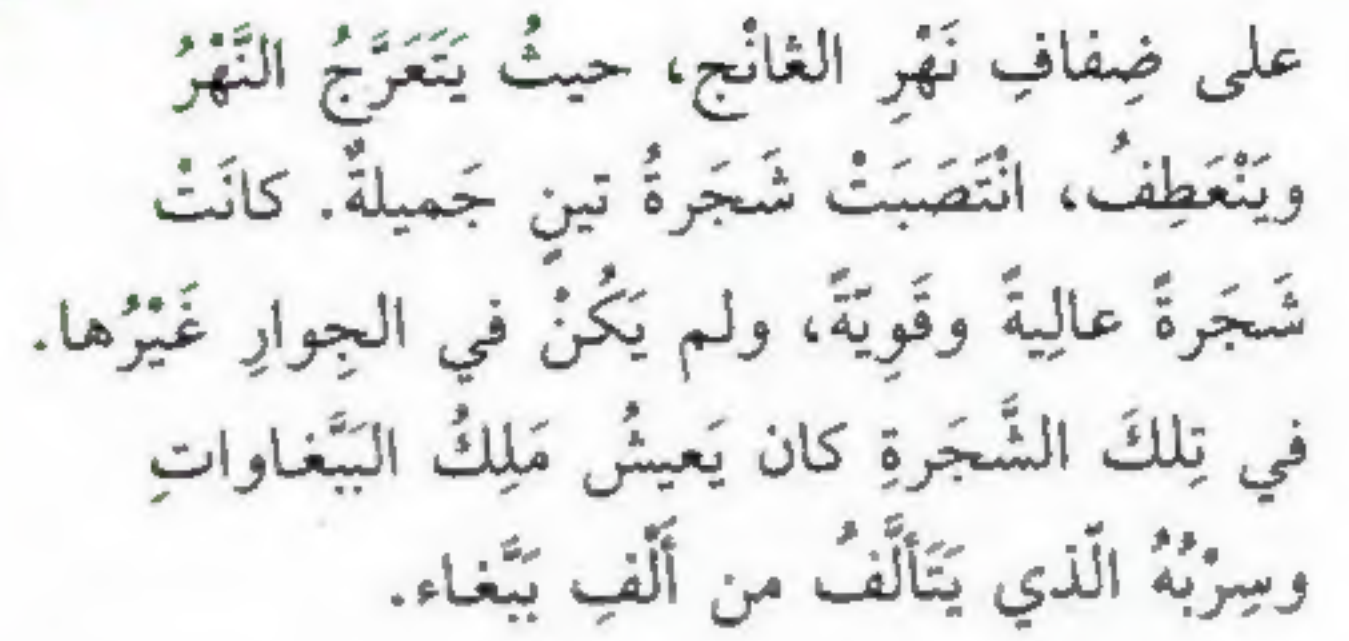 على ضِفافِ نَهْرِ الغانْج، حيثُ يَتَعَرَّجُ النَّهْرُ
ويَنْعَطِفُ، انْتَصَبَتْ شَجَرةُ تينٍ جَميلةٌ. كانَتْ
شَجَرةً عالِيةً وقَوِيّةً، ولم يَكُنْ في الجِوارِ غَيْرُها.
في تِلكَ الشَّجَرةِ كان يَعيشُ مَلِكُ البَبَّغاواتِ
وسِرْبُهُ الّذي يَتَألَّفُ من ألْفِ بَبَّغاء.